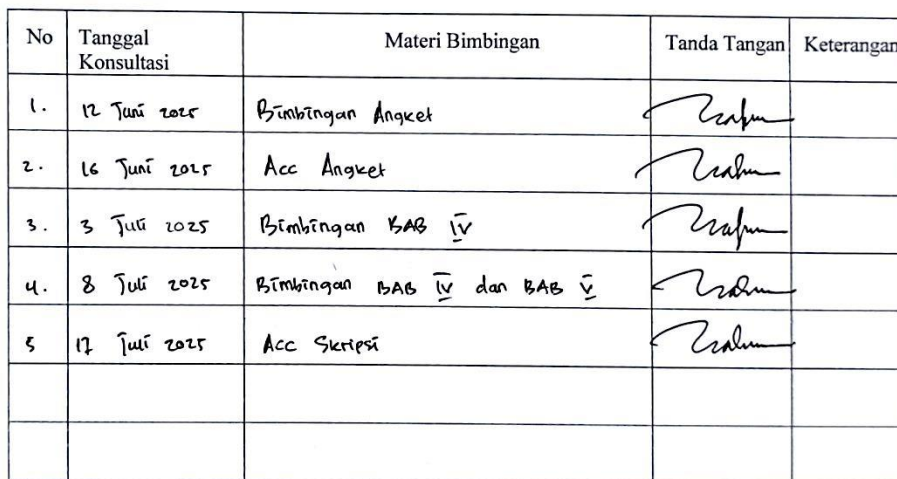 No Tanggal Konsultasi Materi Bimbingan Tanda Tangan Keterangan
1. 12 Juni 2025 Bimbingan Angket
2. 16 Juni 2025 Acc Angket
3. 3 Juli 2025 Bimbingan BAB IV
4. 8 Juli 2025 Bimbingan BAB IV dan BAB V
5 17 Juli 2025 Acc Skripsi